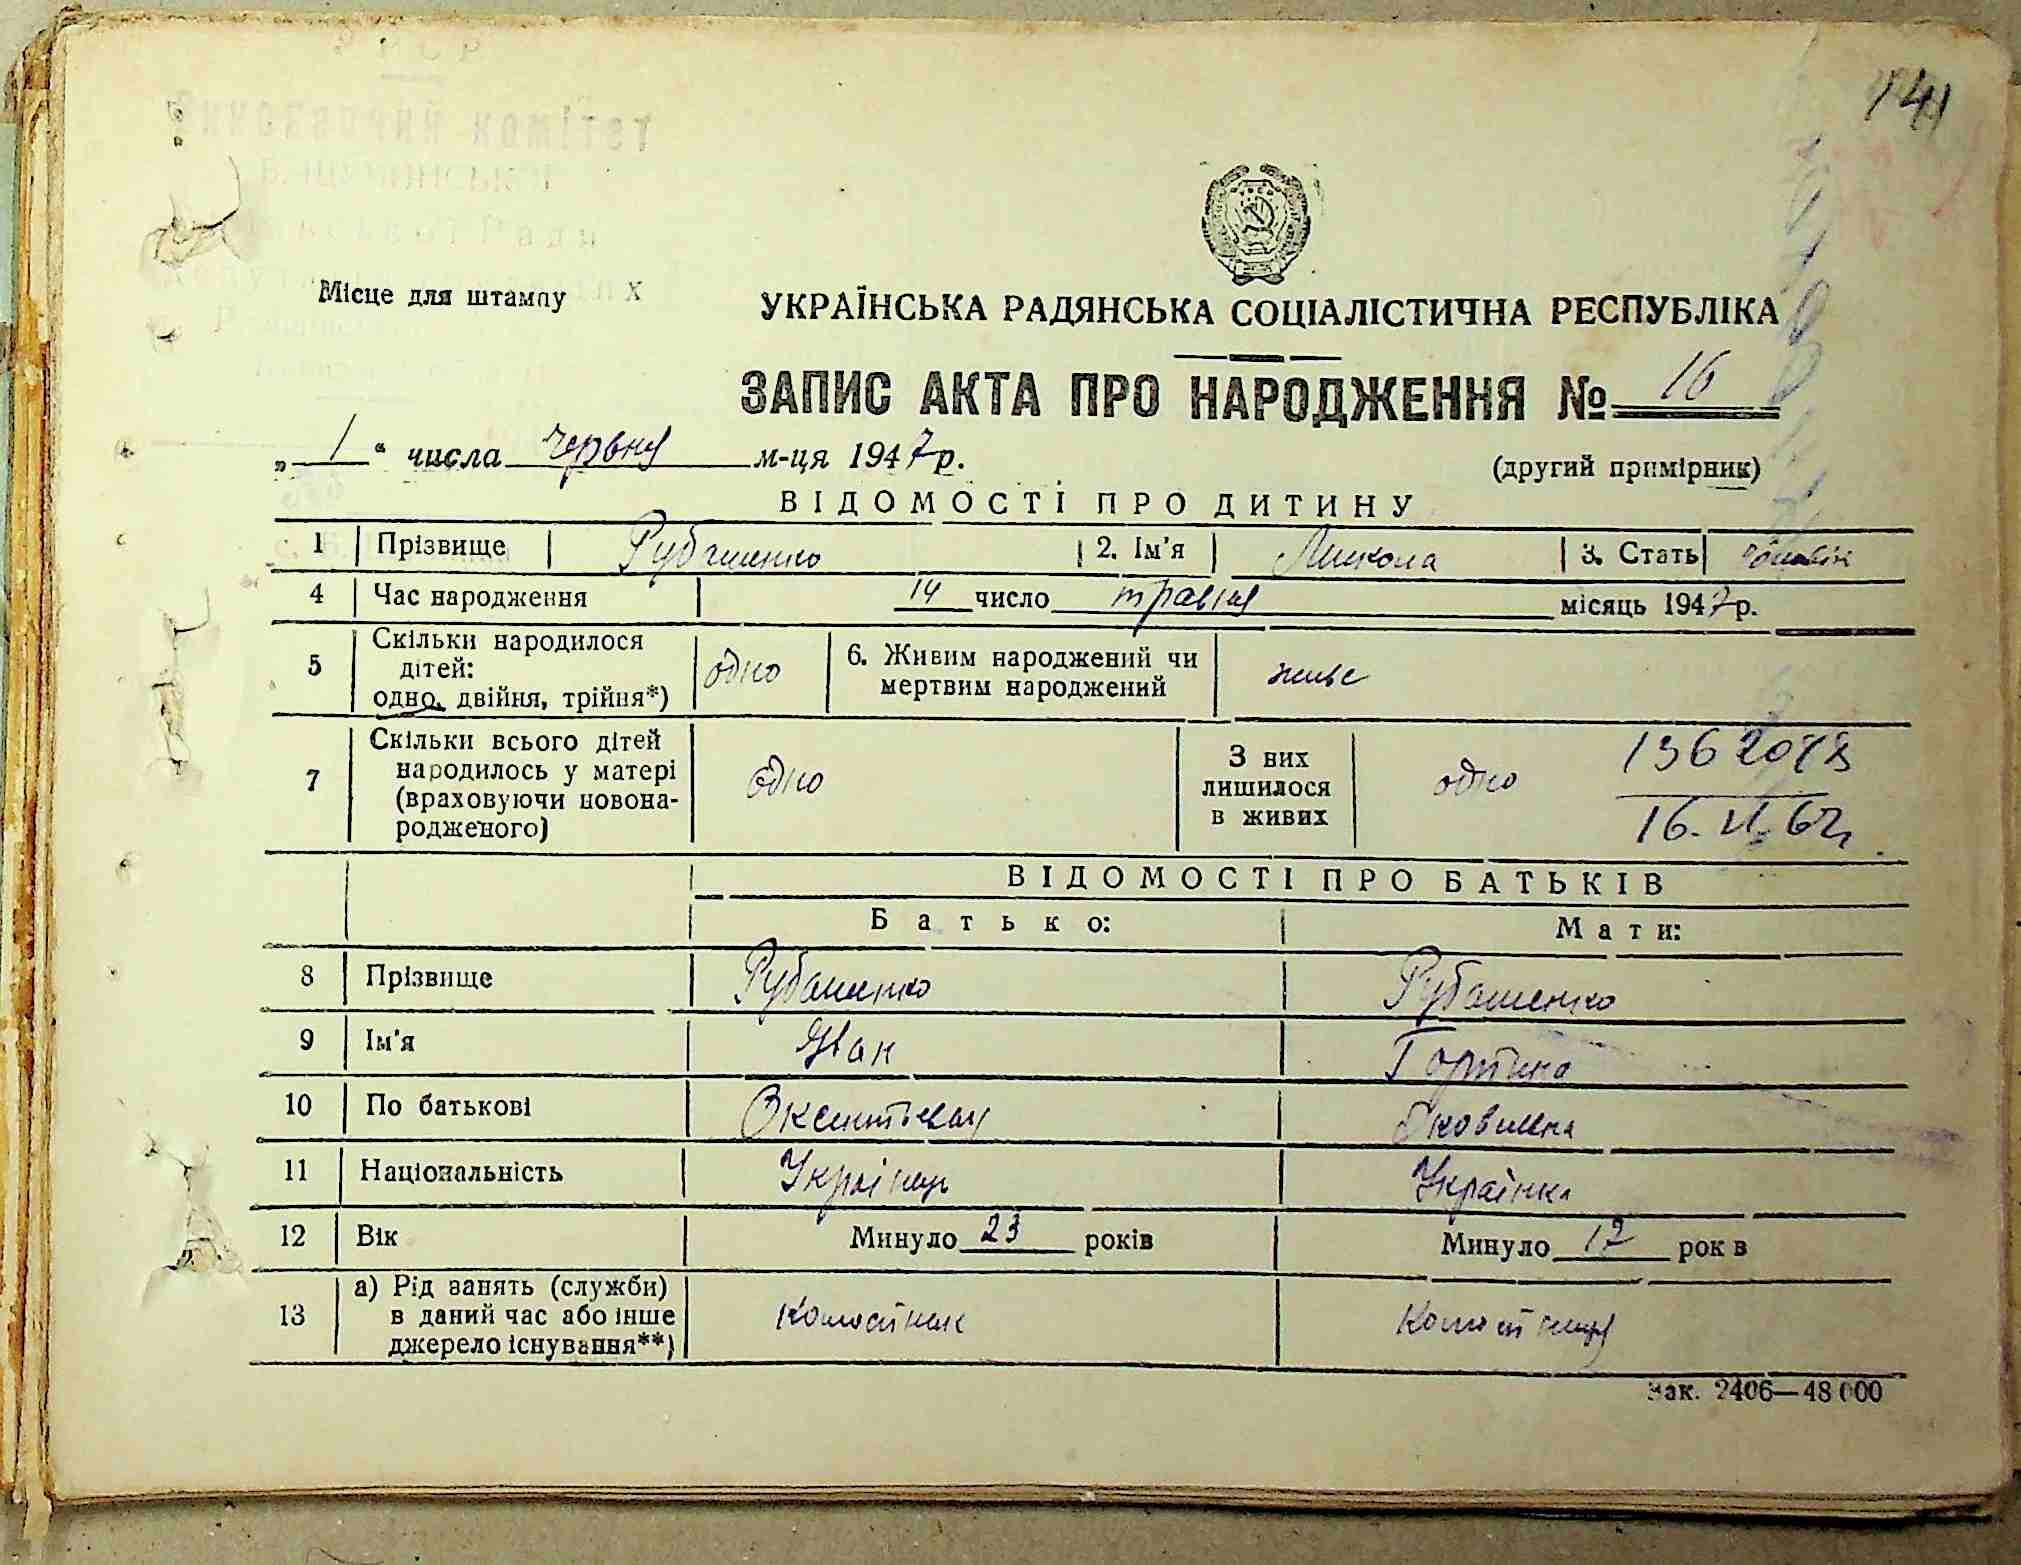 141
Місце для штампу
УКРАЇНСЬКА РАДЯНСЬКА СОЦІАЛІСТИЧНА РЕСПУБЛІКА
ЗАПИС АКТА ПРО НАРОДЖЕННЯ № 16
„ 1 “ числа червня м-ця 1947 р.
(другий примірник)
ВІДОМОСТІ ПРО ДИТИНУ
1 Прізвище Рубашенко 2. Ім'я Микола 3. Стать
4 Час народження 14 число травня місяць 1947 р.
5 Скільки народилося дітей: одно, двійня, трійня*) одно 6. Живим народжений чи мертвим народжений живе
7 Скільки всього дітей народилось у матері (враховуючи новонародженого) одно З них лишилося в живих одно
16.VI.62
ВІДОМОСТІ ПРО БАТЬКІВ
Батько: Мати:
8 Прізвище Рубашенко Рубашенко
9 Ім'я Іван
10 По батькові
11 Національність Українець Українка
12 Вік Минуло 23 років Минуло рок в
13 а) Рід занять (служби) в даний час або інше джерело існування**)
Зак. 2406—48 000